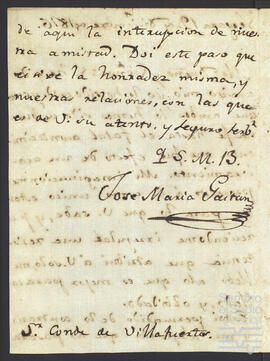 de aqui la interupcion de nues-
tra amistad. Doi este paso que
exige la honradez misma, y
nuestras relaciones, con las que
es de V. su atento, y seguro serv.r
Q. S. M. B.
Jose Maria Gaitan
S.r Conde de Villafuertes.